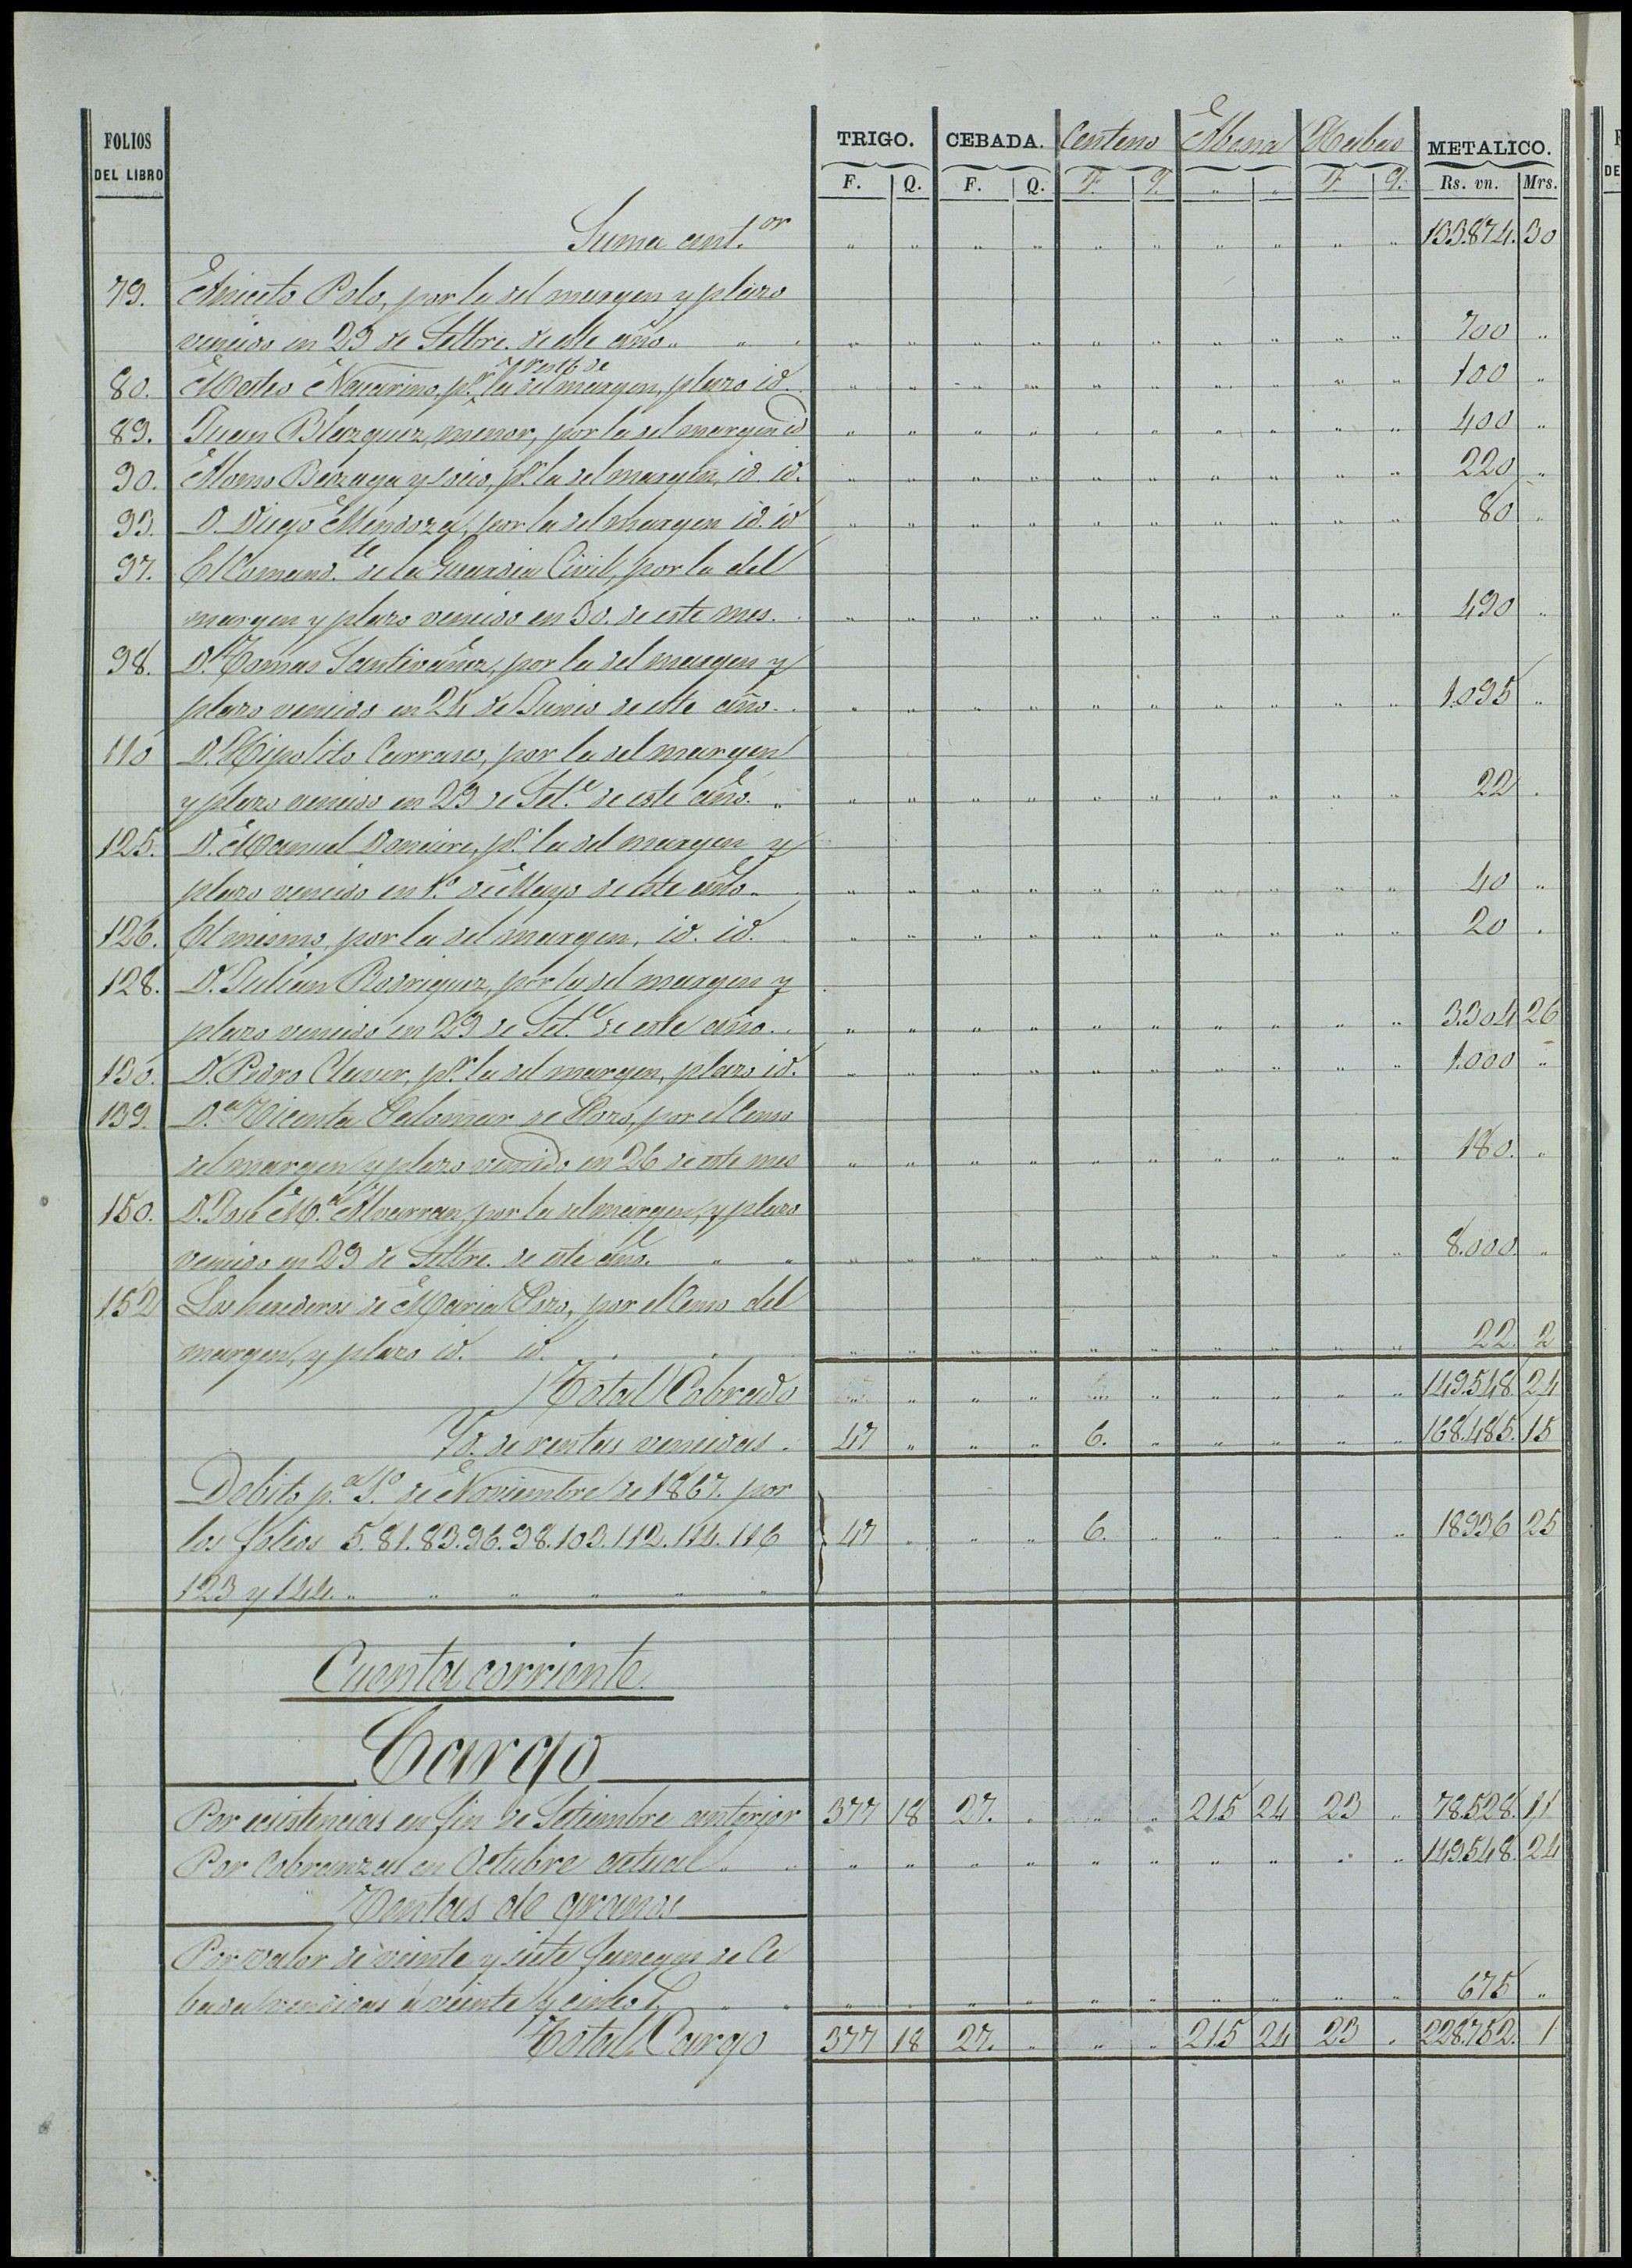 FOLIOS DEL LIBRO TRIGO. CEBADA. Centeno Abena Habas METALICO.
F. Q. F. Q. F. q. " " F. q. Rs. vn. Mrs.
Suma ant.or " " " " " " " " " " 133.874. 30
79. Aniceto Polo, por la del margen y plazo
vencido en 29 de Setbre. de este año " " " " " " " " " " 700 "
80. Mateo Navarino, p.r resto de la del margen, plazo id. " " " " " " " " " " 100 "
89. Juan Blazquez, menor, por la del margen id " " " " " " " " " " 400 "
90. Alonso Bazaga y socio, p.r la del margen, id. id. " " " " " " " " " " 220 "
93. D. Diego Mendoza, por la del margen id. id " " " " " " " " " " 80 "
97. El Comand.te de la Guardia Civil, por la del
margen y plazo vencido en 30. de este mes. " " " " " " " " " " 490 "
98. D. Tomas Santivañez, por la del margen y
plazo vencido en 24 de Junio de este año. " " " " " " " " " " 1.095 "
110 D. Hipolito Carrasco, por la del margen
y plazo vencido en 29 de Set.e de este año. " " " " " " " " " " 22 "
125. D. Manuel p.r la del margen y
plazo vencido en 1.o de Mayo de este año. " " " " " " " " " " 40 "
126. El mismo, por la del margen, id. id. " " " " " " " " " " 20 "
128. D. Julian Rodriguez, por la del margen y
plazo vencido en 29 de Set.e de este año. " " " " " " " " " " 3.304 26
130. D. Pedro Claver, p.r la del margen, plazo id. " " " " " " " " " " 1.000 "
139. D.a Vicenta Palomar de Pozo, por el Censo
del margen y plazo vencido en 26 de este mes " " " " " " " " " " 180. "
150. D. José M.a Alvarran, por la del margen, y plazo
vencido en 29 de Setbre. de este año. " " " " " " " " " " 8.000 "
152 Los herederos de Maria Pozo, por el Censo del
margen, y plazo id. id. " " " " " " " " " " 22. 2
Total Cobrado " " " " " " " " " " 149.548. 24
Yd. de rentas vencidas. 47 " " " 6. " " " " " 168.485. 15
Debito p.a 1.o de Noviembre de 1867. por
los folios 5. 81. 83. 96. 98. 103. 112. 114. 116 47 " " " 6. " " " " " 18936 25
123 y 144. " " " " " "
Cuenta corriente.
Cargo
Por ecsistencias en fin de Setiembre anterior 377 18 27. " " " 215 24 23 " 78.528. 11
Por Cobranzas en Octubre actual " " " " " " " " " " 149.548. 24
Ventas de granos
Por valor de veinte y siete fanegas de Ce
bada vendidas á veinte y cinco " " " " " " " " " " 675 "
Total Cargo 377 18 27. " " " 215 24 23 " 228.752. 1